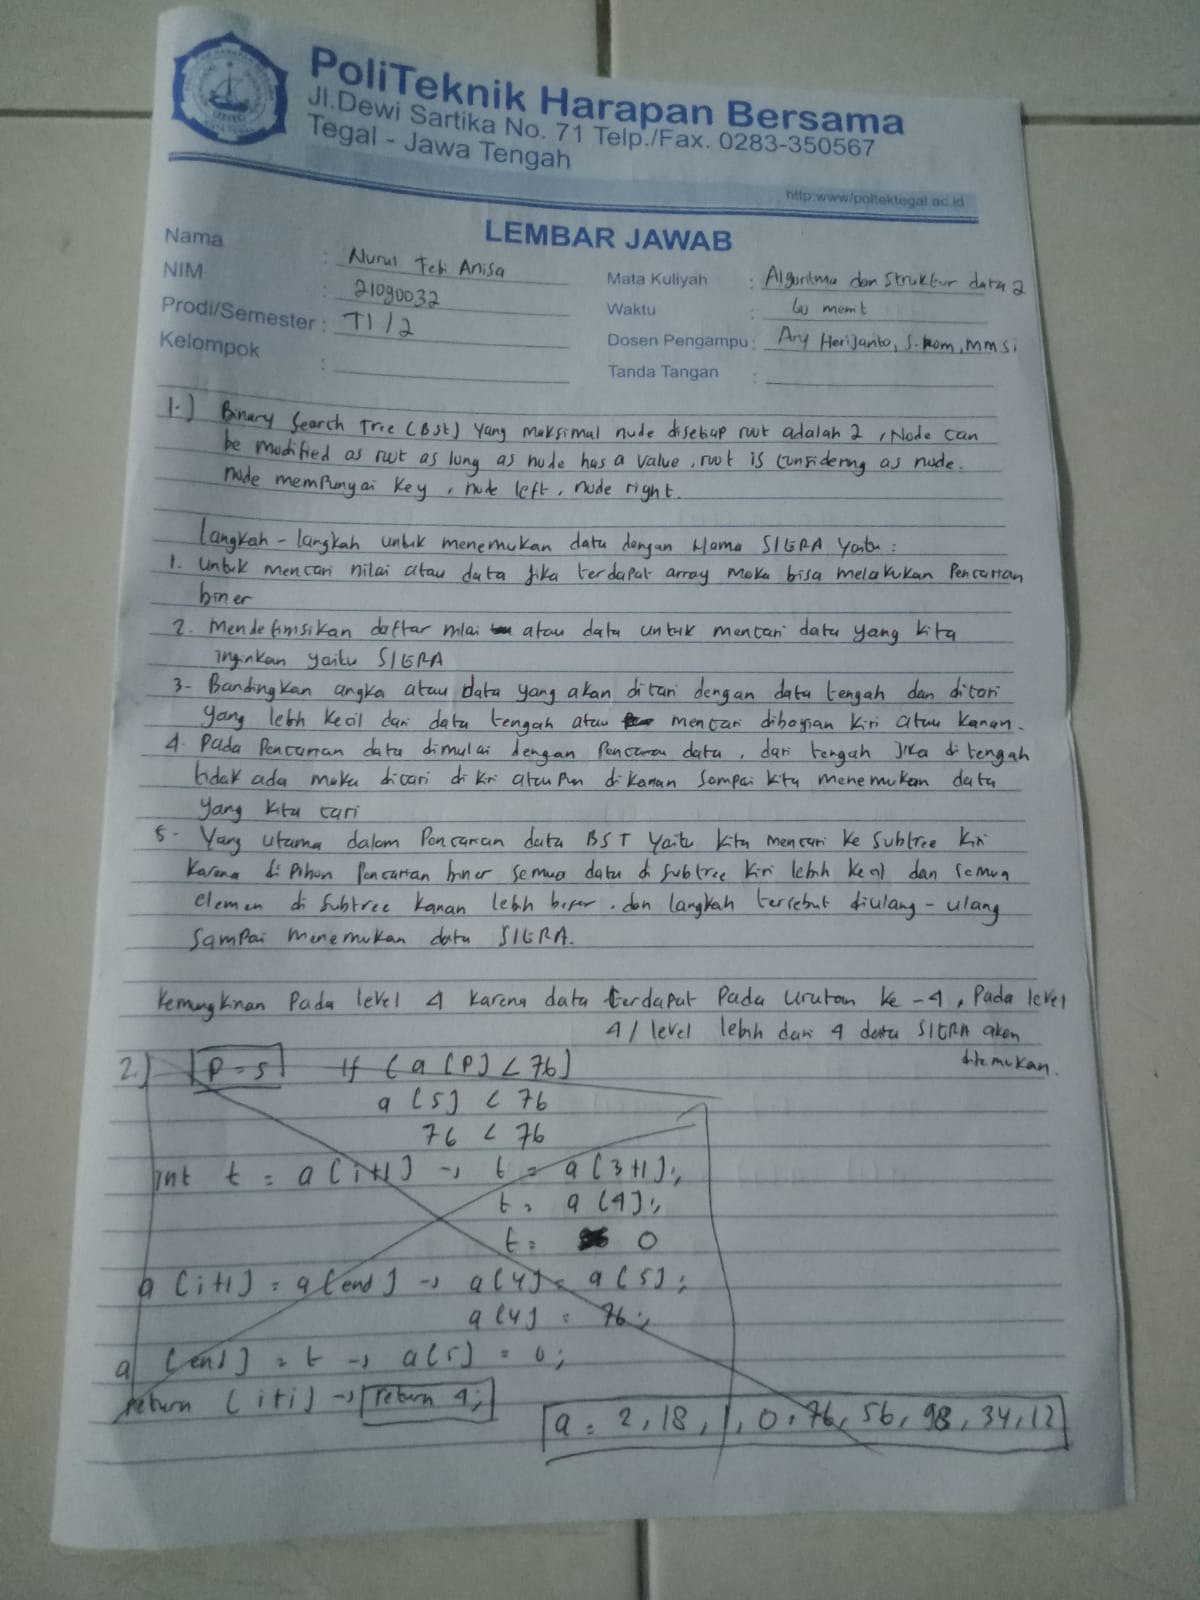 PoliTeknik Harapan Bersama
Jl.Dewi Sartika No. 71 Telp./Fax. 0283-350567
Tegal - Jawa Tengah
http:www/poltektegal.ac.id
LEMBAR JAWAB
Nama : Nurul Febi Anisa
NIM : 21090032
Prodi/Semester : TI / 2
Kelompok :
Mata Kuliyah : Algoritma dan Struktur data 2
Waktu : menit
Dosen Pengampu : Ary Herijanto, S.kom, MMSi
Tanda Tangan :
1.) Binary Search Tree (BSt) Yang maksimal node disetiap root adalah 2, Node can
be modified as root as long as node has a value, root is considering as node.
Node mempunyai key, node left, node right.
Langkah - langkah untuk menemukan data dengan Nama SIERA Yaitu :
1. untuk mencari nilai atau data jika terdapat array maka bisa melakukan Pencarian
biner
2. Mendefinisikan daftar nilai atau data untuk mencari data yang kita
inginkan yaitu SIERA
3. Bandingkan angka atau data yang akan dicari dengan data tengah dan dicari
yang lebih kecil dari data tengah atau mencari dibagian kiri atau kanan.
4. Pada Pencarian data dimulai dengan Pencarian data, dari tengah jika ditengah
tidak ada maka dicari di kiri ataupun dikanan sampai kita menemukan data
yang kita cari
5. Yang utama dalam Pencarian data BST Yaitu kita mencari ke Subtree Kiri
karena di Pohon Pencarian biner semua data di subtree kiri lebih kecil dan semua
elemen di subtree kanan lebih besar. dan langkah tersebut diulang - ulang
sampai menemukan data SIERA.
Kemungkinan Pada level 4 karena data terdapat Pada urutan ke -4, Pada level
4 / level lebih dari 4 data SIERA akan
ditemukan.
2.) P = 5 If (a [P] < 76]
a [5] < 76
76 < 76
int t = a [i+1] → t = a [3+1];
t = a [4];
t = 0
a [i+1] = a [end] → a [4] = a [5];
a [4] = 76;
a [end] = t → a [5] = 0;
return [i+i] → return 4;
a = 2, 18, 1, 0, 76, 56, 98, 34, 12